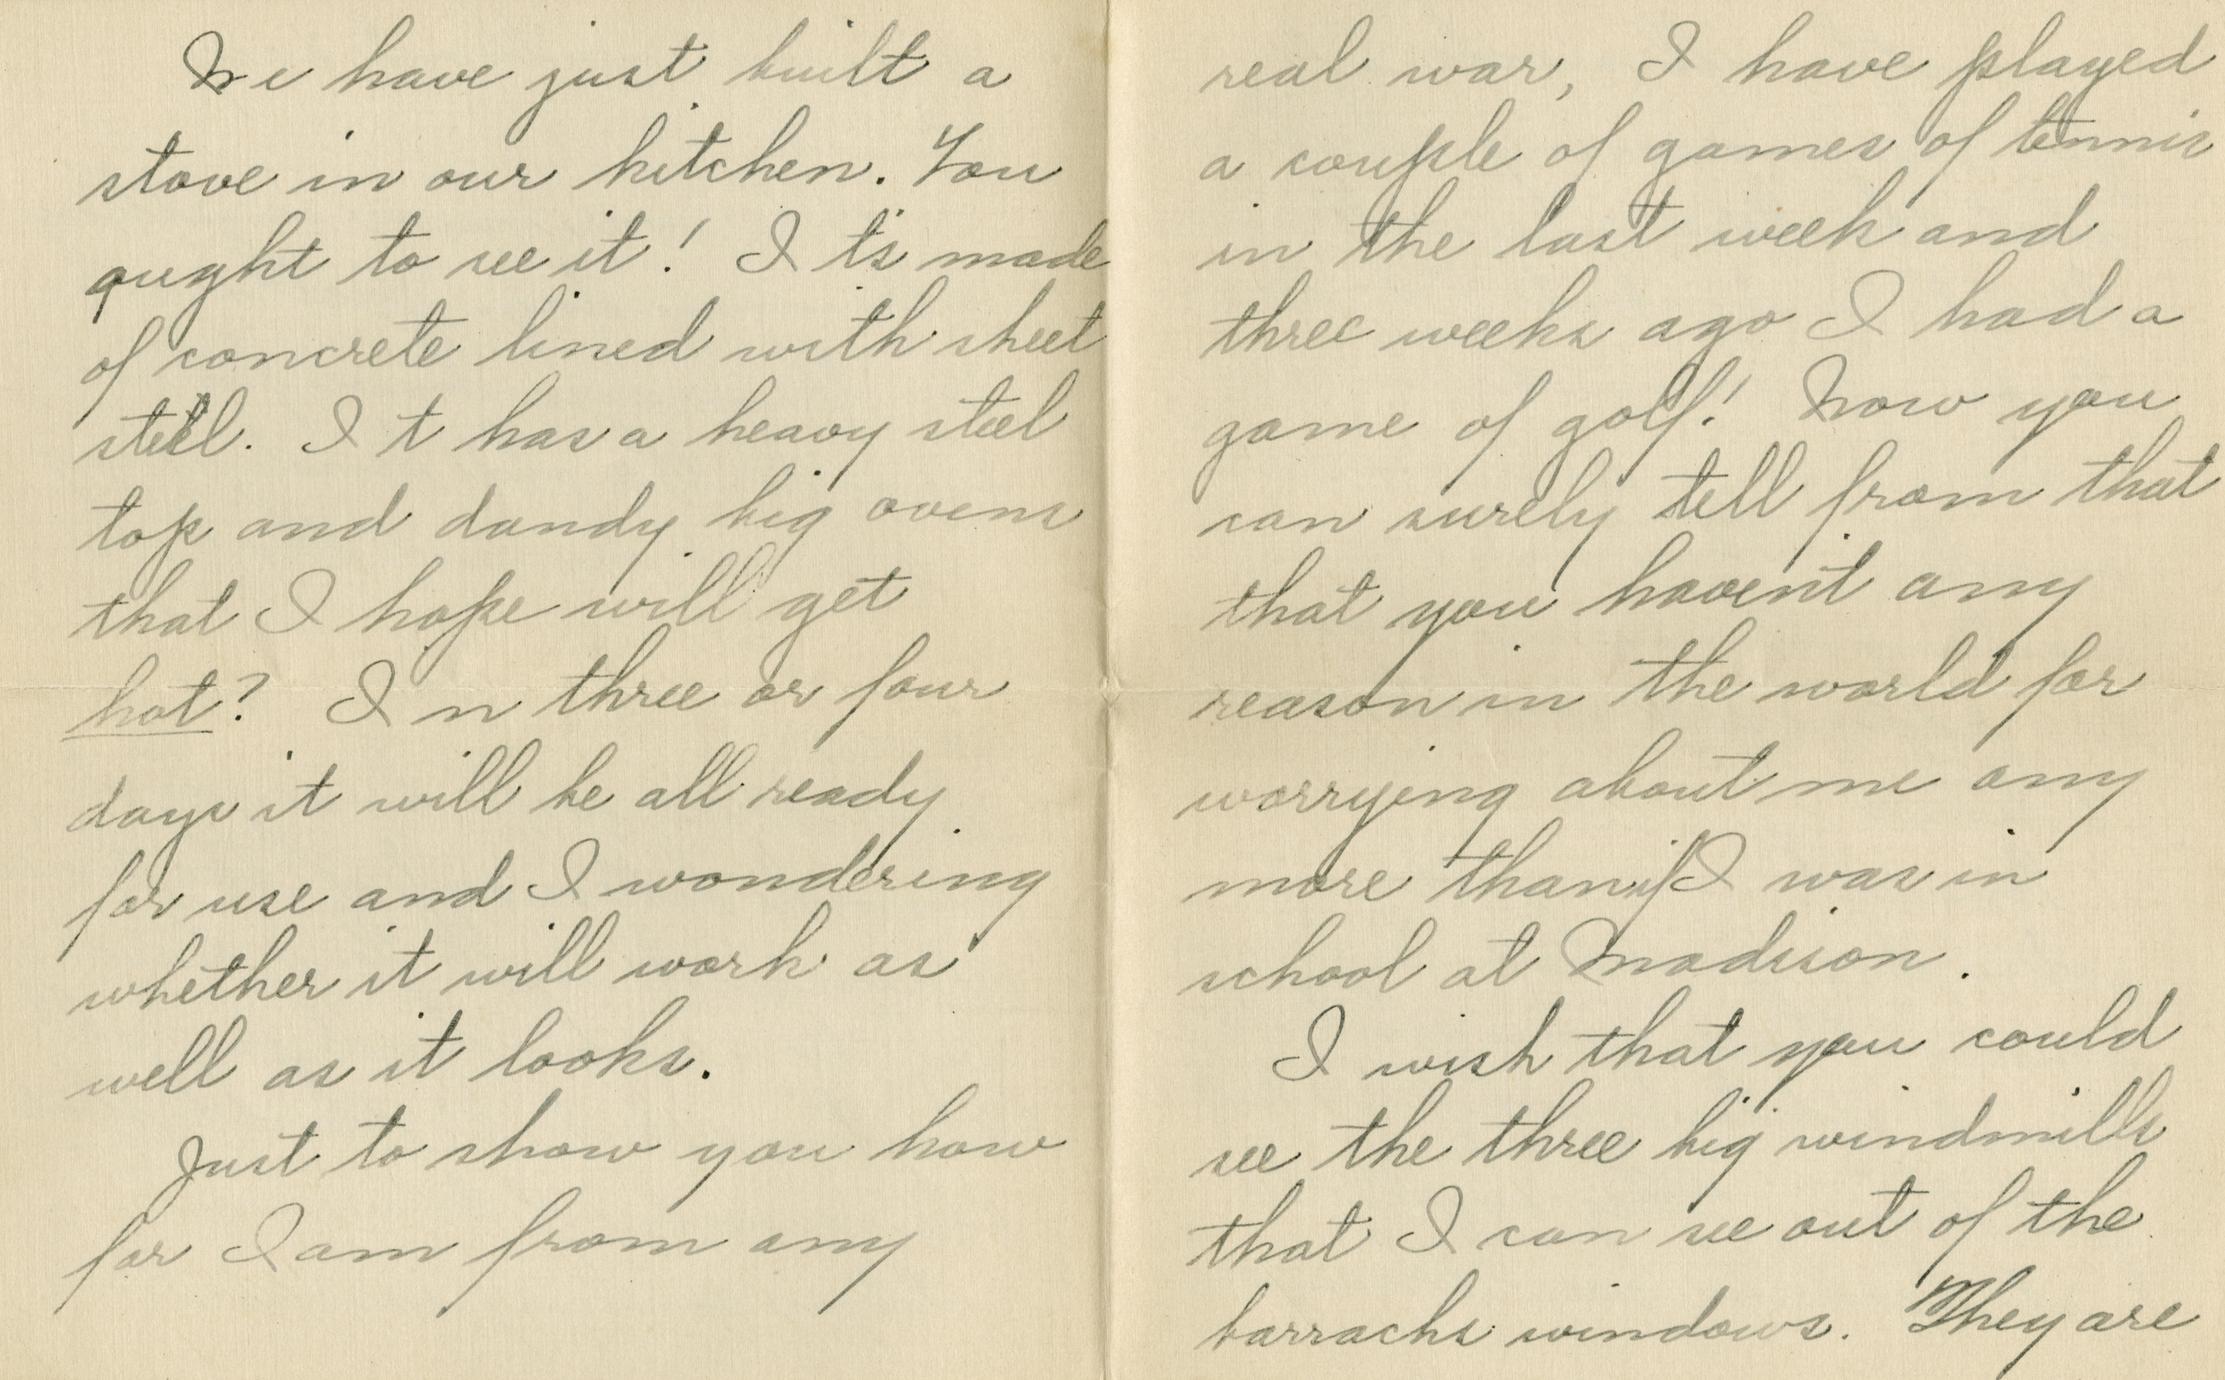 We have just built a
stove in our kitchen. You
ought to see it! Its made
of concrete lined with sheet
steel. It has a heavy steel
top and dandy big ovens
that I hope will get
hot? In three or four
days it will be all ready
for use and I wondering
whether it will work as
well as it looks.
Just to show you how
far I am from any
real war, I have played
a couple of games of tennis
in the last week and
three weeks ago I had a
game of golf! Now you
can surely tell from that
that you haven't any
reason in the world for
worrying about me any
more than if I was in
school at Madison.
I wish that you could
see the three big windmills
that I can see out of the
barracks windows. They are